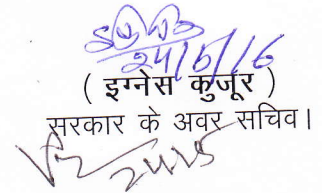 24/5/16
( इग्नेस कुजूर )
सरकार के अवर सचिव।
24/5